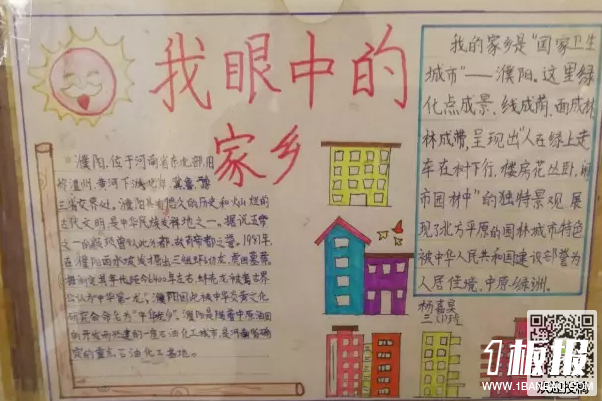 我眼中的
家乡
濮阳，位于河南省东北部，旧
称澶州，黄河下游北岸，冀鲁豫
三省交界处。濮阳具有悠久的历史和灿烂的
古代文明，是中华民族发祥地之一。据说五帝
之一的颛顼曾以此为都，故有帝都之誉。1987年
在濮阳西水坡发掘出三组蚌砌龙
据测定其年代距今6400年左右
公认为中华第一龙，濮阳因此被中华炎黄文化
研究会命名为"中华龙乡"。濮阳是随着中原油田
的开发而兴建的一座石油化工城市，是河南省确
定的重点石油化工基地。
我的家乡是"国家卫生
城市"——濮阳。这里绿
化点成景、线成荫、面成林
林成带，呈现出"人在绿上走
车在树下行，楼房花丛卧，闹
市园林中"的独特景观，展
现了北方平原的园林城市特色
被中华人民共和国建设部誉为
人居佳境，中原绿洲。
杨嘉昊
三(1)班
1板报
WWW.1BANBAO.COM
欢迎投稿